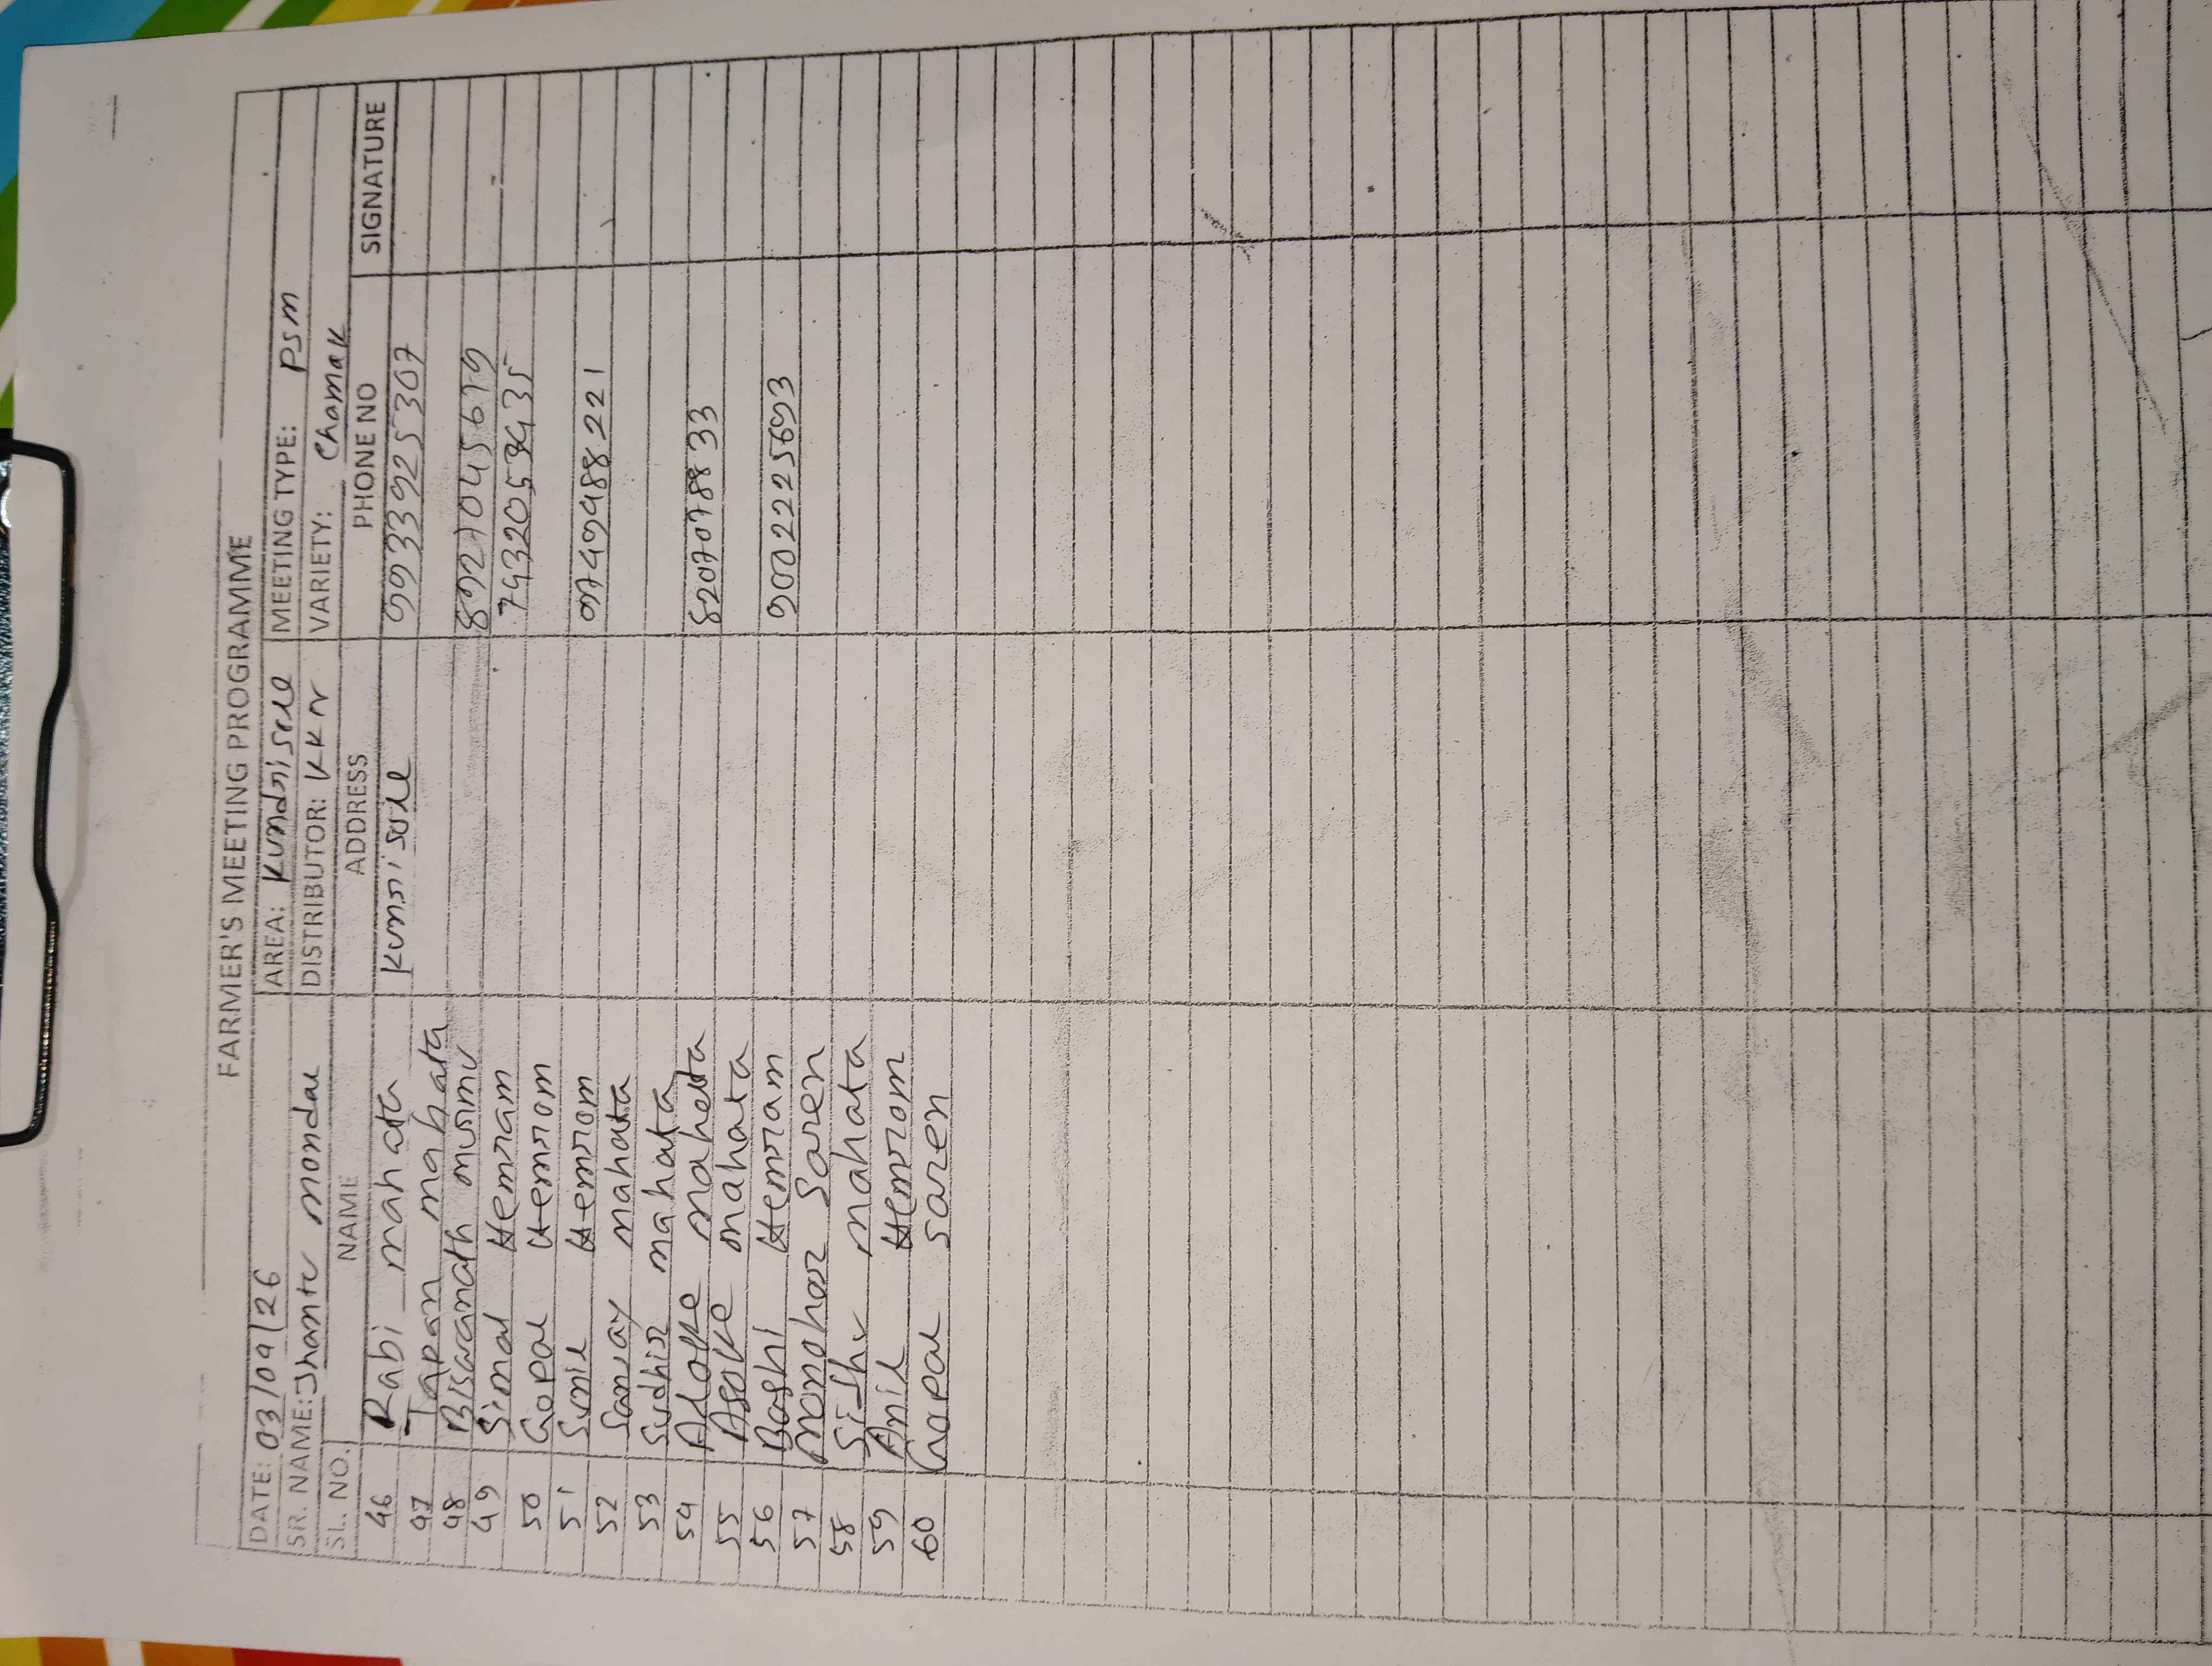 FARMER'S MEETING PROGRAMME
DATE: 03/09/26 AREA: Kundrisole MEETING TYPE: PSM
SR. NAME: Jhantu mondal DISTRIBUTOR: KKN VARIETY: Chamak
SL. NO. NAME ADDRESS PHONE NO SIGNATURE
46 Rabi mahata Kunrisole 9933925307
47 Tapan mahata
48 Biswanath murmu 8927045679
49 Simal Hemram 7432053435
50 Gopal Hemrom
51 Sunil Hemrom 9749498221
52 Sanjay mahata
53 Sudhir mahata
54 Aloke mahata 8207078833
55 Asoke mahata
56 Bashi Hemram 9002225693
57 monohar Saren
58 Sidhu mahata
59 Anil Hemrom
60 Gopal saren